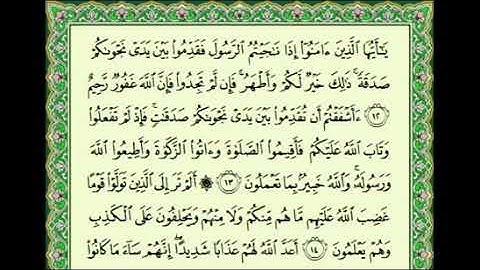 يَٰٓأَيُّهَا ٱلَّذِينَ ءَامَنُوٓا۟ إِذَا نَٰجَيْتُمُ ٱلرَّسُولَ فَقَدِّمُوا۟ بَيْنَ يَدَىْ نَجْوَىٰكُمْ
صَدَقَةً ۚ ذَٰلِكَ خَيْرٌ لَّكُمْ وَأَطْهَرُ ۚ فَإِن لَّمْ تَجِدُوا۟ فَإِنَّ ٱللَّهَ غَفُورٌ رَّحِيمٌ
١٢ ءَأَشْفَقْتُمْ أَن تُقَدِّمُوا۟ بَيْنَ يَدَىْ نَجْوَىٰكُمْ صَدَقَٰتٍ ۚ فَإِذْ لَمْ تَفْعَلُوا۟
وَتَابَ ٱللَّهُ عَلَيْكُمْ فَأَقِيمُوا۟ ٱلصَّلَوٰةَ وَءَاتُوا۟ ٱلزَّكَوٰةَ وَأَطِيعُوا۟ ٱللَّهَ
وَرَسُولَهُۥ ۚ وَٱللَّهُ خَبِيرٌۢ بِمَا تَعْمَلُونَ ١٣ ۞ أَلَمْ تَرَ إِلَى ٱلَّذِينَ تَوَلَّوْا۟ قَوْمًا
غَضِبَ ٱللَّهُ عَلَيْهِم مَّا هُم مِّنكُمْ وَلَا مِنْهُمْ وَيَحْلِفُونَ عَلَى ٱلْكَذِبِ
وَهُمْ يَعْلَمُونَ ١٤ أَعَدَّ ٱللَّهُ لَهُمْ عَذَابًا شَدِيدًا ۖ إِنَّهُمْ سَآءَ مَا كَانُوا۟